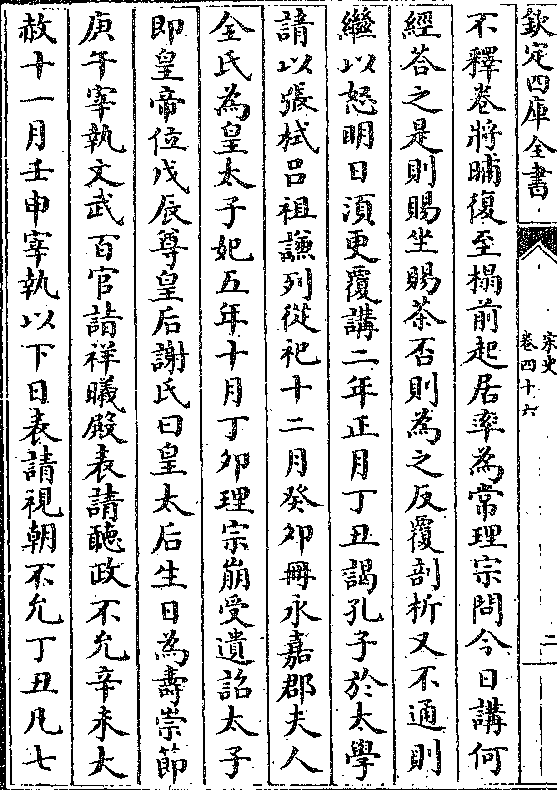 欽定四庫全書
宋史
卷四十六
二
不釋卷將晡復至榻前起居率為常理宗問今日講何
經荅之是則賜坐賜茶否則為之反覆剖析又不通則
繼以怒明日湏更覆講二年正月丁丑謁孔子於太學
請以張栻呂祖謙列從祀十二月癸夘冊永嘉郡夫人
全氏為皇太子妃五年十月丁夘理宗崩受遺詔太子
即皇帝位戊辰尊皇后謝氏曰皇太后生日為壽崇節
庚午宰執文武百官詣祥曦殿表請聽政不允辛未大
赦十一月壬申宰執以下日表請視朝不允丁丑凡七